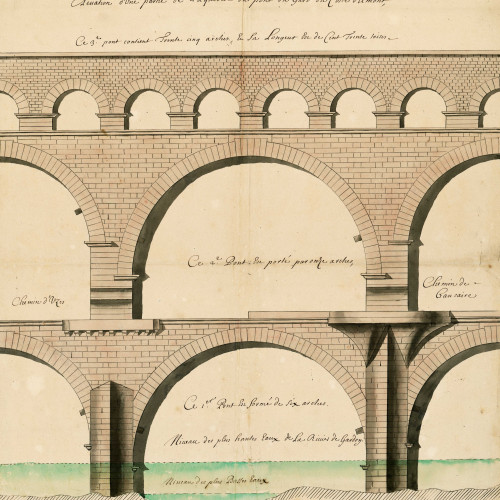 Elevation d'Une partie de L'aqueduc du pont du Gard du
Ce 3.e pont contient Trente cinq arches, & La Longeur est de Cent Trente toises.
Ce 2.e Pont est porté par onze arches,
Chemin d'Uzes
Chemin de
Baucaire
Ce 1.er Pont est formé de six arches.
Niveau des plus hautes Eaux de La Riviere de Gardon
Niveau des plus Basses Eaux